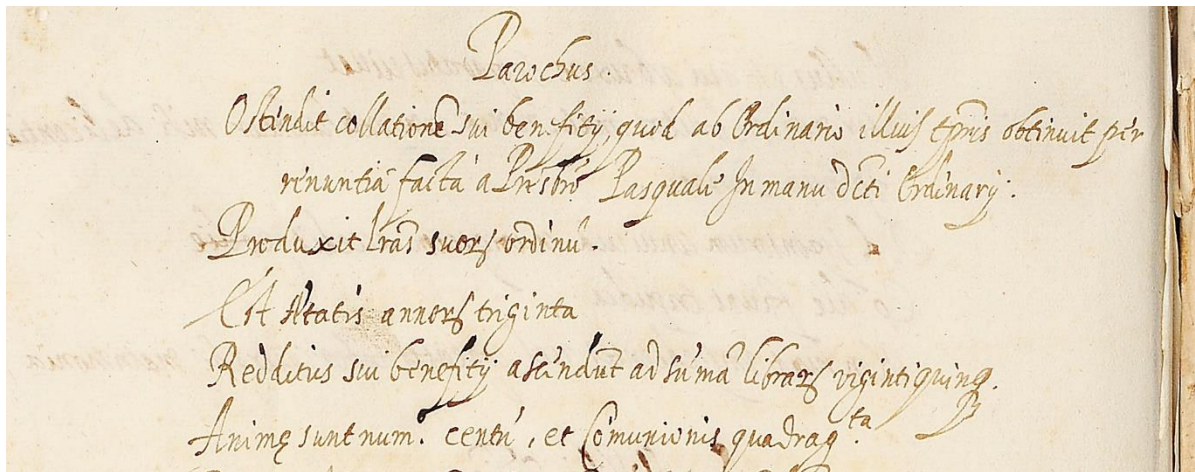 Parochus.
Ostendit collationẽ sui benefitÿ, quod ab Ordinario illius tp̃ris obtinuit per
renuntiã factã a Prẽsbro Pasquale In manu dc̃ti Ordinarÿ.
Produxit lr̃as suorꝝ ordinũ.
Est Ætatis annorꝝ triginta
Redditus sui benefitÿ ascendũt ad sũmã librarꝝ vigintiquinqꝫ.
Animę sunt num.º centũ, et Comunionis quadrag.ta